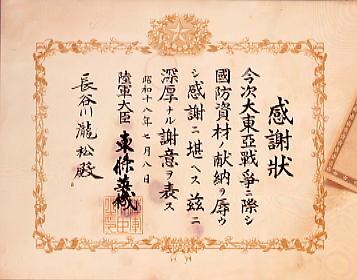 感謝狀
今次大東亞戰爭ニ際シ
國防資材ノ献納ヲ辱ウ
シ感謝ニ堪ヘス茲ニ
深厚ナル謝意ヲ表ス
昭和十八年七月八日
陸軍大臣 東條英機
長谷川瀧松殿